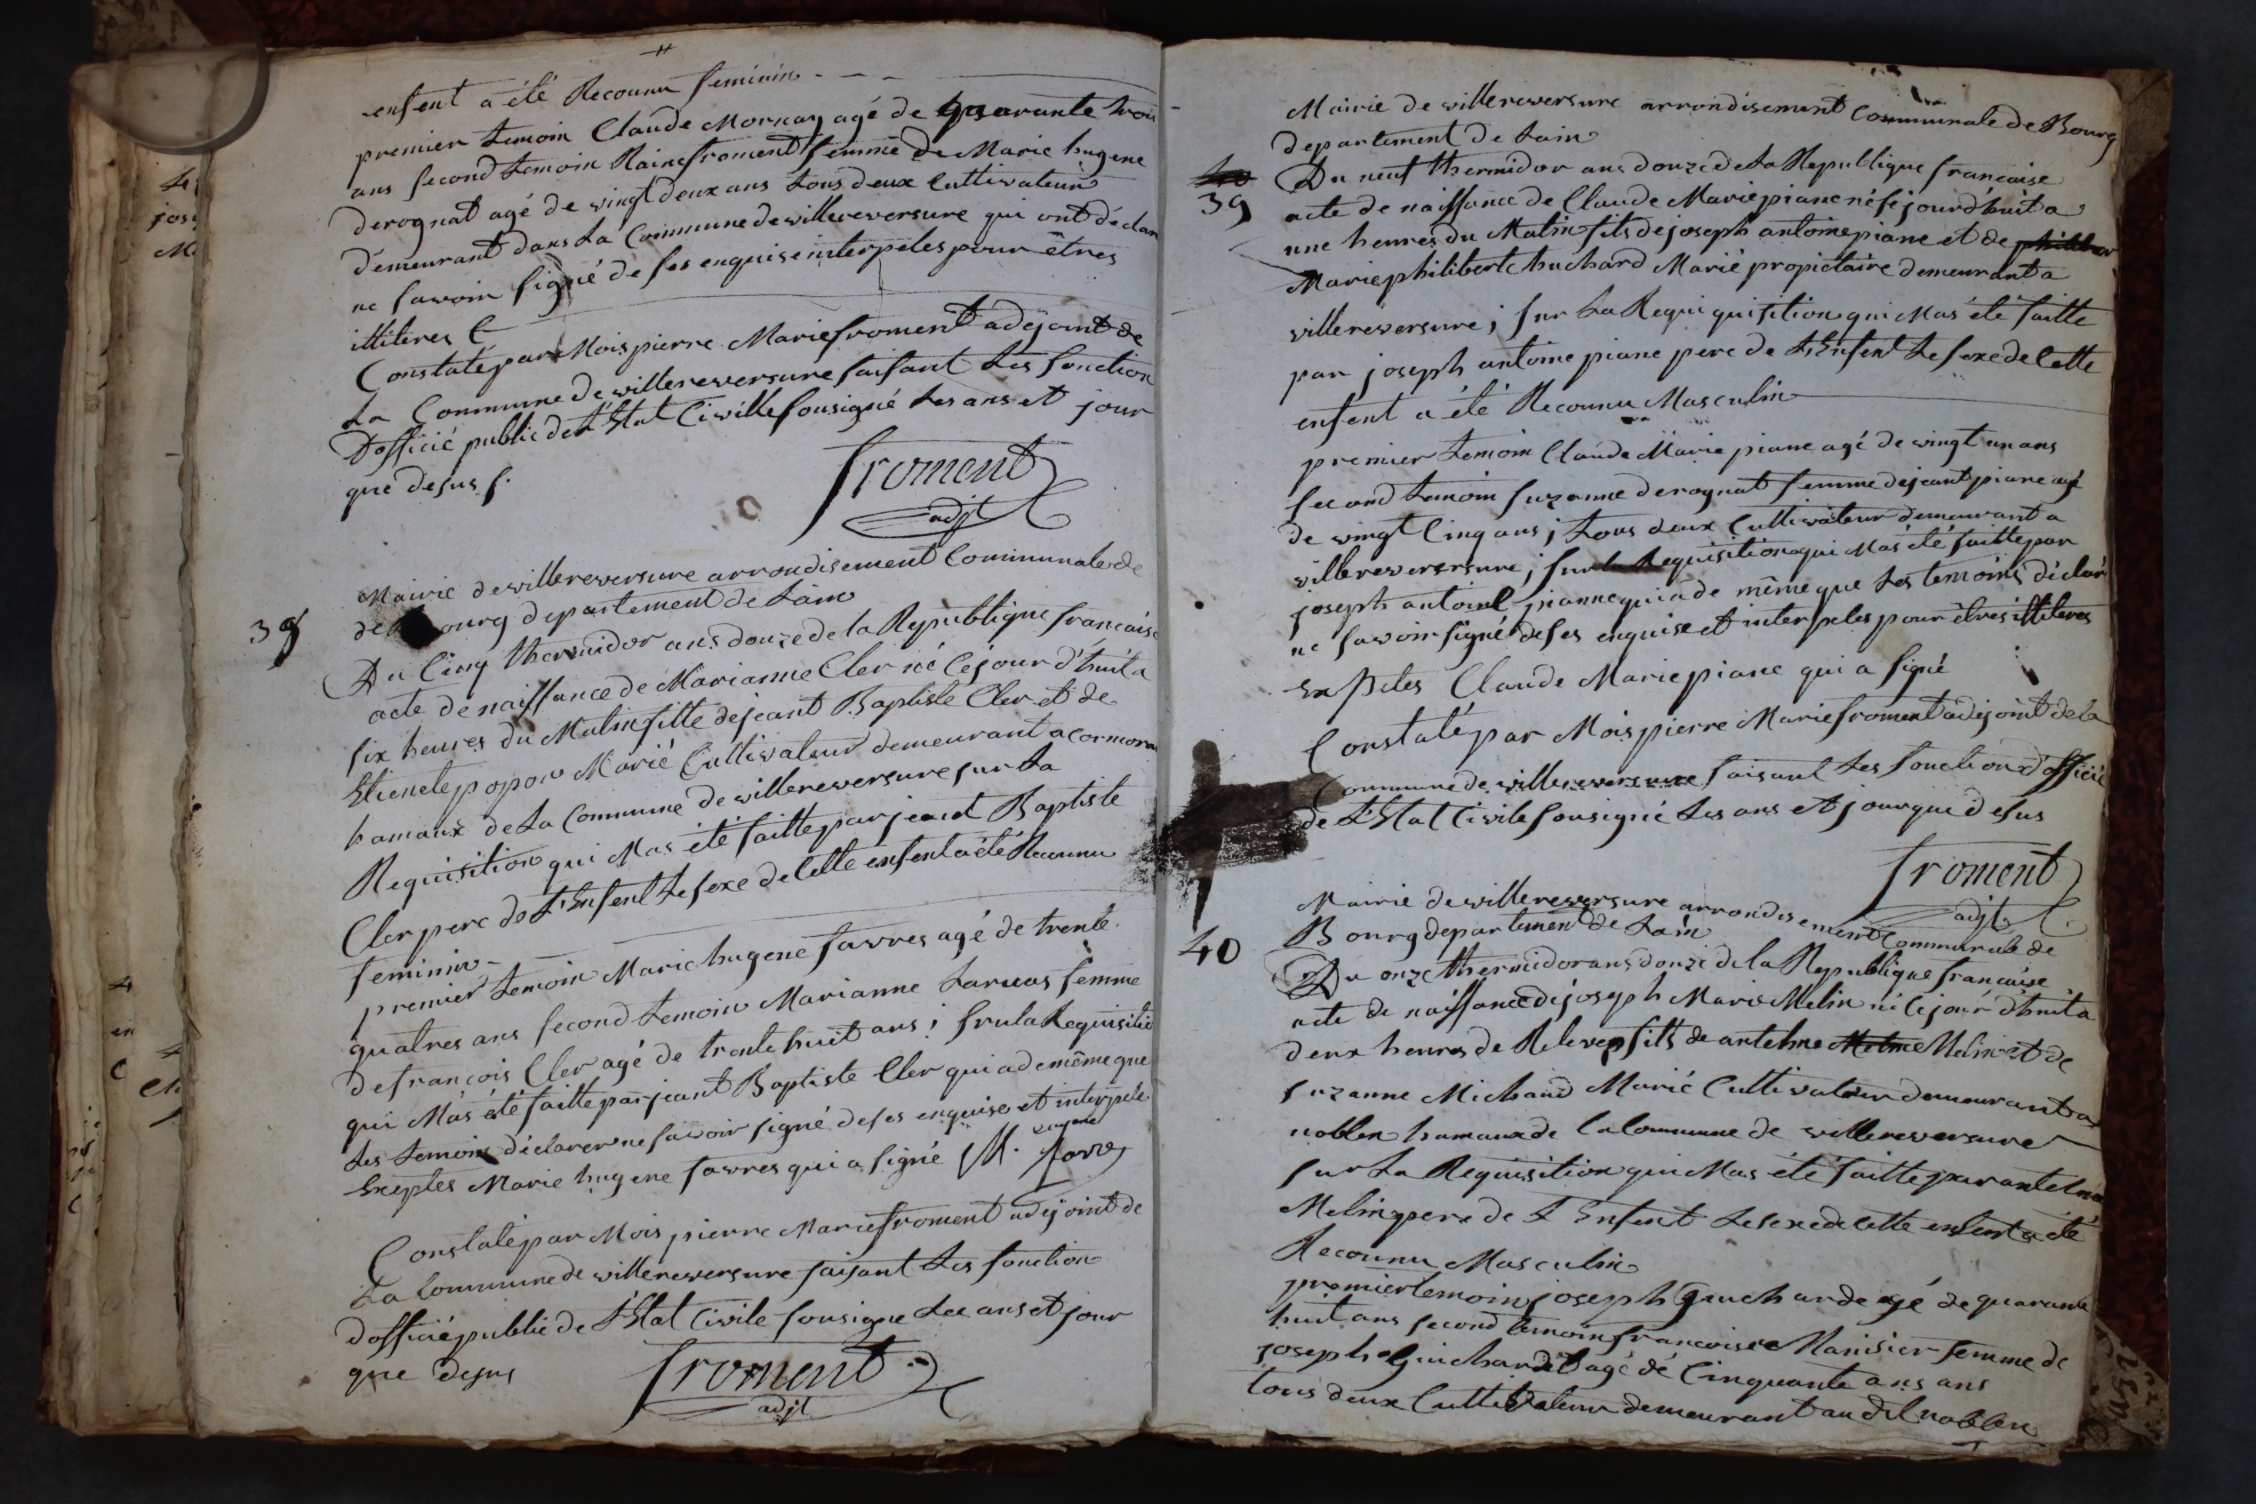 enfent a été Reconnu feminin
premier temoin Claude Mornay agé de quarante trois
ans second temoin Raine froment femme de Marie hugene
derognat agé de vingt deux ans tous deux Cultivateur
demeurant dans La Commune de villereversure qui ont déclar
ne savoir signé de ses enquise interpeles pour êtres
illiteres
Constaté par Mois pierre Marie froment adejoint de
La Commune de villereversure faisant Les fonction
D'officié public de L'Etat Civille sousigné Les ans et jour
que desus
froment
adjt
Mairie de villereversure arrondisement Communale de
de Bourg departement de Lain
38
Du Cinq thermidor ans douze de la Republique francaise
acte de naissance de Marianne Cler né Ce jour d'huit a
six heures du Matin fille de jeant Baptiste Cler et de
Etienete popon Marié Cultivateur demeurant a Cormoran
hamaux de La Commune de villereversure sur La
Requisition qui Mas été faitte par jeant Baptiste
Cler pere de L'Enfent Le sexe de Cette enfent a été Reconnu
feminin
premier temoin Marie hugene favres agé de trente
quatres ans second temoin Marianne femme
de francois Cler agé de trente huit ans ; sru la Requisitio
qui Mas été faitte par jeant Baptiste Cler qui a de même que
Les temoin déclarer ne savoir signé de ses enquise et interpele
Exeptes Marie hugene favres qui a signé M. eugene favre
Constaté par Mois pierre Marie froment adejoint de
La Commune de villereversure faisant Les fonction
d'officié public de L'Etat Civile sousigne Les ans et jour
que desus
froment
adjt
Mairie de villereversure arrondisement Communale de Bourg
departement de Lain
40
39
Du neuf thermidor ans douze de La Republique francaise
acte de naissance de Claude Marie piane né se jour d'huit a
une heures du Matin fils de joseph antoine piane et de philiber
Marie philiberte huchard Marié propietaire demeurant a
villereversure ; sur La Requiquisition qui Mas été faitte
par joseph antoine piane pere de L'Enfent Le sexe de Cette
enfent a été Reconnu Masculin
premier temoin Claude Marie piane agé de vingt un ans
second temoin suzanne derognat femme de jeant piane agé
de vingt Cinq ans ; tous deux Cultivateur demeurant a
villereversrsure ; sur la Requisition qui Mas été faitte par
joseph antoine pianne qui a de même que Les temoins déclar
ne savoir signé de ses enquise et interpeles pour êtres illiteres
Exsptes Claude Marie piane qui a signé
Constaté par Mois pierre Marie froment adejoint de la
Commune de villereversure faisant Les fonctions d'officié
de L'Etat Civile sousigné Les ans et jour que desus
froment
adjt
Mairie de villereversure arrondisement Communale de
Bourg departement de Lain
40
Du onze thermidor ans douze de la Republique francaise
acte de naissance de joseph Marie Melin né Ce jour d'huit a
deux heures de Relevep fils de antelme Melme Melin et de
suzanne Michaud Marié Cultivateur demeurant a
noblen hamaux de La Commune de villereversure
sur La Requisition qui Mas été faitte par antelme
Melin pere de L'Enfent Le sexe de Cette enfent a été
Reconnu Masculin
premier temoin joseph Guicharde agé de quarante
huit ans second temoin francoisse Manisier femme de
joseph Guichardt agé de Cinquante ans ans
tous deux Cultivateur demeurant au dit noblen